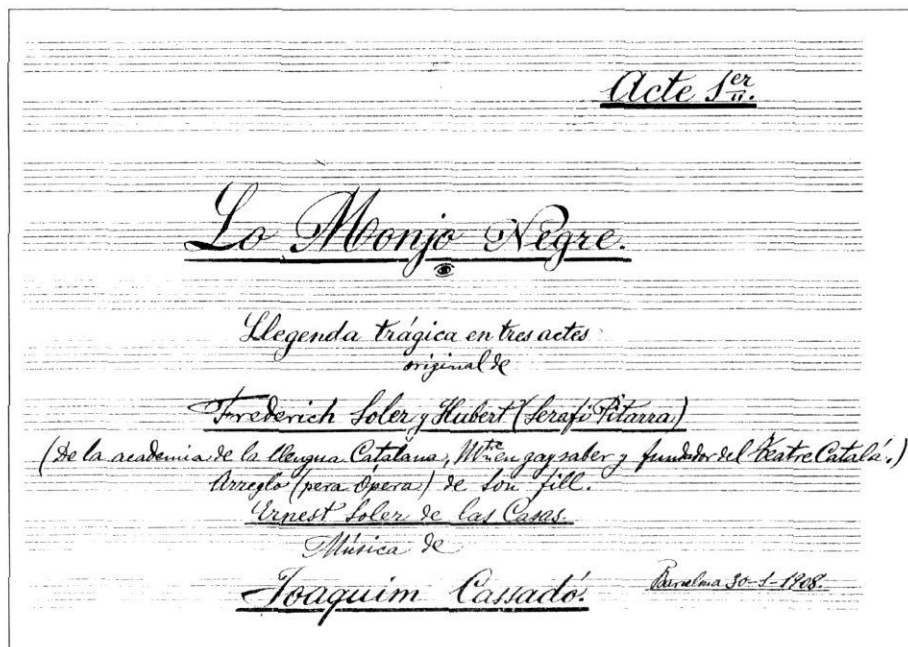 Acte 1er.
Lo Monjo Negre.
Llegenda trágica en tres actes
original de
Frederich Soler y Hubert (Serafí Pitarra)
(de la academia de la llengua Catalana, Mtre en gay saber y fundador del Teatre Catalá.)
Arreglo (pera Ópera) de son fill.
Ernest Soler de las Casas.
Música de
Joaquim Cassadó.
Barcelona 30-1-1908.